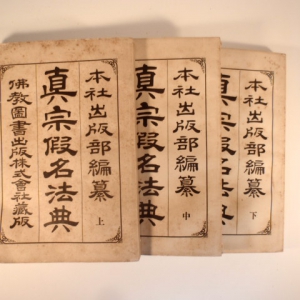 本社出版部編纂
真宗假名法典 上
佛教圖書出版株式會社藏版
本社出版部編纂
真宗假名法典 中
本社出版部編纂
真宗假名法典 下